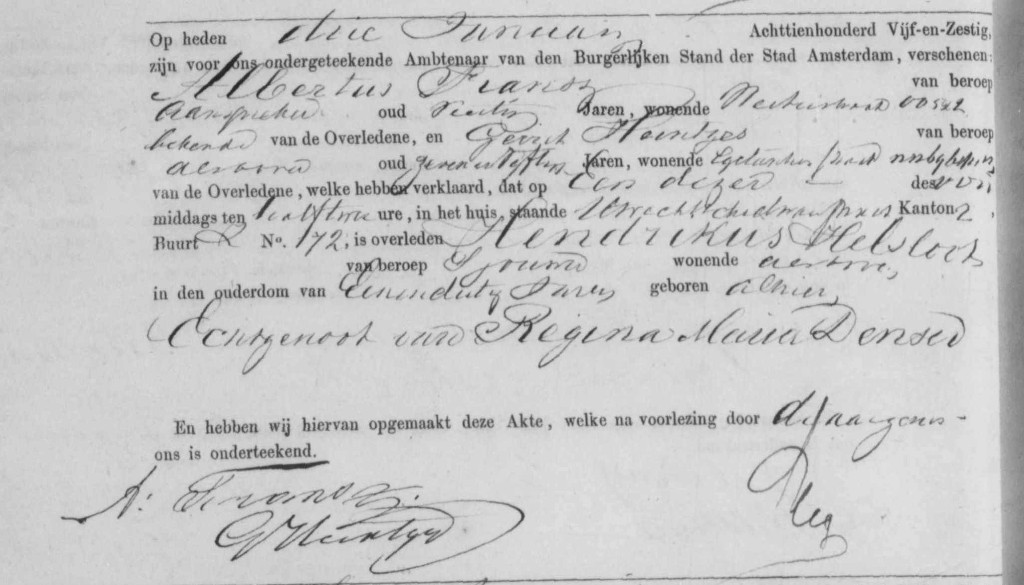 Op heden drie Januari Achttienhonderd Vijf-en-Zestig,
zijn voor ons ondergeteekende Ambtenaar van den Burgerlijken Stand der Stad Amsterdam, verschenen:
Albertus Frans van beroep
Aanspreker oud Jaren, wonende
bekende van de Overledene, en Gerrit Heintjes van beroep
als voren oud zeven en vijftig Jaren, wonende
van de Overledene, welke hebben verklaard, dat op Een dezer des voor
middags ten half twee ure, in het huis, staande Utrechtschedwarsstraat Kanton 2,
Buurt R No. 172, is overleden Hendrikus Helsloot
van beroep wonende als voren,
in den ouderdom van Jaren, geboren alhier,
Echtgenoot van Regina Maria Denser
En hebben wij hiervan opgemaakt deze Akte, welke na voorlezing door de aangevers
ons is onderteekend.
A: Frans
G Heintjes